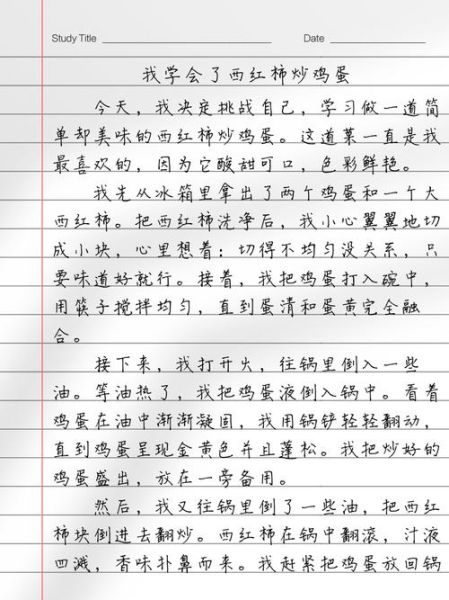 Study Title
Date
我学会了西红柿炒鸡蛋
今天，我决定挑战自己，学习做一道简
单却美味的西红柿炒鸡蛋。这道菜一直是我
最喜欢的，因为它酸甜可口，色彩鲜艳。
我先从冰箱里拿出了两个鸡蛋和一个大
西红柿。把西红柿洗净后，我小心翼翼地切
成小块，心里想着：切得不均匀没关系，只
要味道好就行。接着，我把鸡蛋打入碗中，
用筷子搅拌均匀，直到蛋清和蛋黄完全融
合。
接下来，我打开火，往锅里倒入一些
油。等油热了，我把鸡蛋液倒入锅中。看着
鸡蛋在油中渐渐凝固，我用锅铲轻轻翻动，
直到鸡蛋呈现金黄色并且蓬松。我把炒好的
鸡蛋盛出，放在一旁备用。
然后，我又往锅里倒了一些油，把西红
柿块倒进去翻炒。西红柿在锅中翻滚，汁液
四溅，香味扑鼻而来。我赶紧把鸡蛋放回锅